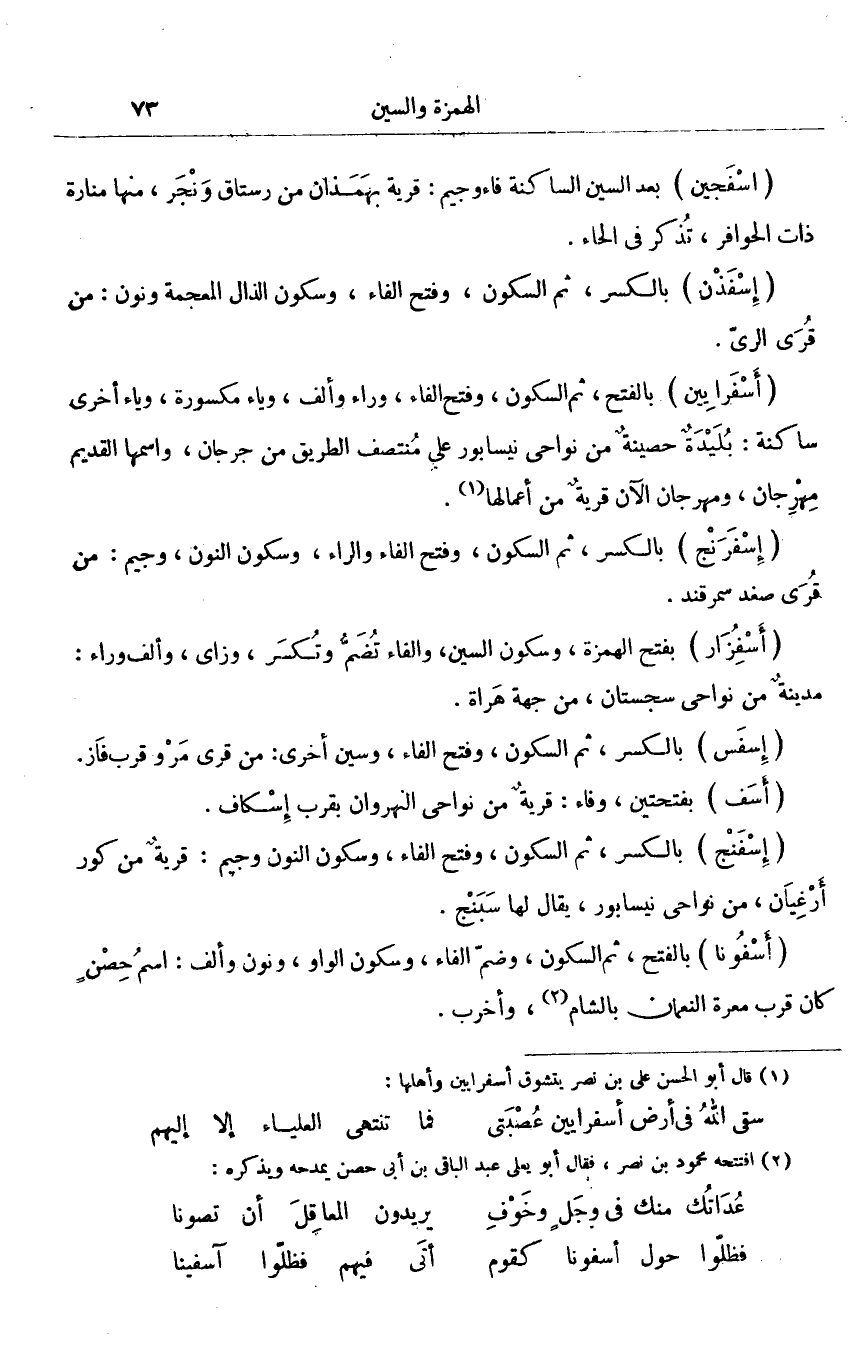 الهمزة والسين ٧٣
( اسْفَجين ) بعد السين الساكنة فاء وجيم : قرية بهَمَـذان من رستاق وَنْجَر ، منها منارة
ذات الحوافر ، تُذكر فى الحاء .
( إِسْفَذْن ) بالكسر ، ثم السكون ، وفتح الفاء ، وسكون الذال المعجمة ونون : من
قُرَى الرىّ .
( أَسْفَرايِين ) بالفتح ، ثم السكون ، وفتح الفاء ، وراء وألف ، وياء مكسورة ، وياء أخرى
ساكنة : بُلَيْدَةٌ حصينةٌ من نواحى نيسابور على مُنتصف الطريق من جرجان ، واسمها القديم
مِهْرِجان ، ومهرجان الآن قريةٌ من أعمالها(١) .
( إِسْفَرَنْج ) بالكسر ، ثم السكون ، وفتح الفاء والراء ، وسكون النون ، وجيم : من
قُرَى صغد سمرقند .
( أَسْفِزَار ) بفتح الهمزة ، وسكون السين، والفاء تُضَمُّ وتُكسَر ، وزاى ، وألف وراء :
مدينةٌ من نواحى سجستان ، من جهة هَراة .
( إِسفَس ) بالكسر ، ثم السكون ، وفتح الفاء ، وسين أخرى: من قرى مَرْو قرب فَاَز.
( أَسَف ) بفتحتين ، وفاء : قريةٌ من نواحى النهروان بقرب إِسْكاف .
( إِسْفَنْج ) بالكسر ، ثم السكون ، وفتح الفاء ، وسكون النون وجيم : قريةٌ من كور
أَرْغِيَان ، من نواحى نيسابور ، يقال لها سَبَنْج .
( أَسْفُونا ) بالفتح ، ثم السكون ، وضمّ الفاء ، وسكون الواو ، ونون وألف : اسمُ حِصْنٍ
كان قرب معرة النعمان بالشام(٢) ، وأخرب .
(١) قال أبو الحسن على بن نصر يتشوق أسفرايين وأهلها :
سقى اللهُ فى أرض أسفرايين عُصْبَتى فما تنتهى العليـاء إلا إليهم
(٢) افتتحه محمود بن نصر ، فقال أبو يعلى عبد الباقى بن أبى حصن يمدحه ويذكره :
عُدَاتُك منك فى وجَلٍ وخَوْفٍ يريدون المعاقلَ أن تصونا
فظلّوا حول أسفونا كقوم أتَى فيهم فظلّوا آسفينا